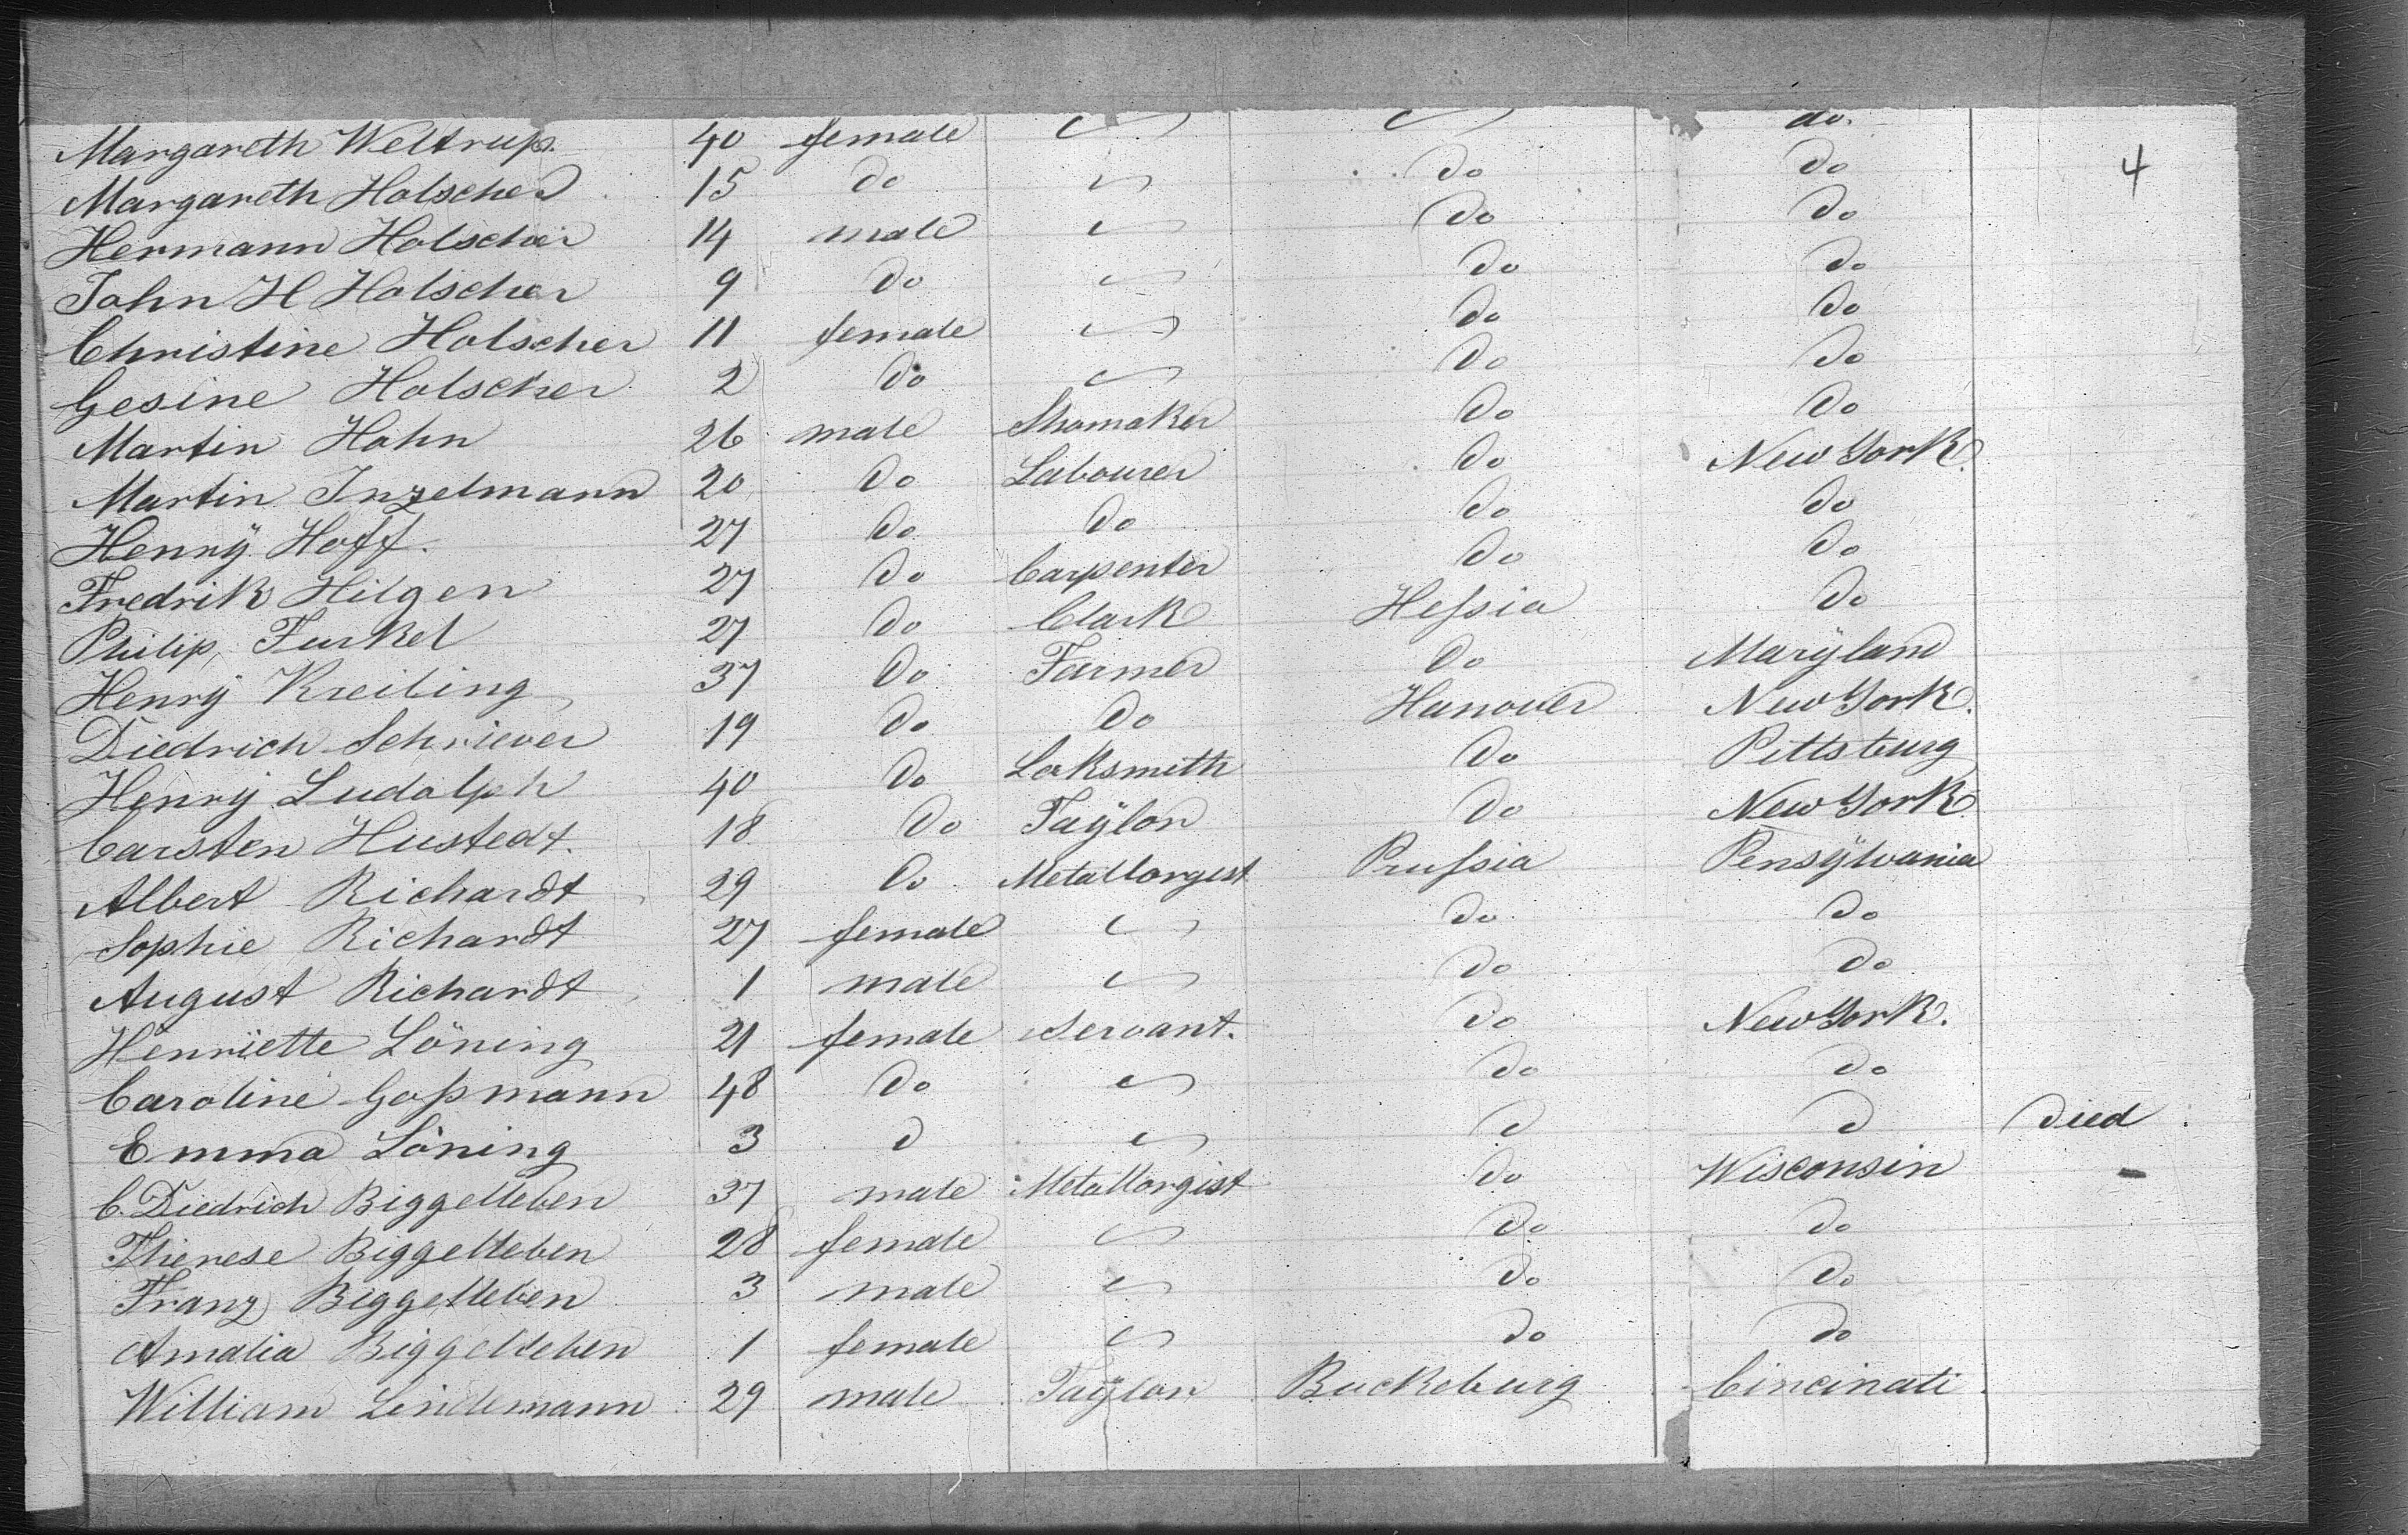 Margareth Weltrup. 40 female do.
Margareth Holscher 15 do do do 4
Hermann Holscher 14 male do do
John H Holscher 9 do do do
Christine Holscher 11 female do do
Gesine Holscher 2 do do do
Martin Hohn 26 male Shomaker do do
Martin Inzelmann 20 do Labourer do New York.
Henrÿ Hoff. 27 do do do do
Fredrik Hilgen 27 do Carpenter do do
Philip Furkel 27 do Clark Heſsia do
Henrÿ Kreiling 37 do Farmer do Marÿland
Diedrich Schriever 19 do do Hanover New York.
Henrÿ Ludolph 40 do Loksmith do Pittsburg
Carsten Hustedt. 18 do Taÿlor do New York
Albert Richardt 29 do Metallorgist Pruſsia Pensÿlvania
Sophie Richardt 27 female do do
August Richardt 1 male do do
Henriette Löning 21 female Servant. do New York.
Caroline Goſsmann 48 do do do
Emma Löning 3 d d d died
C. Diedrich Biggelleben 37 male Metallorgist do Wisconsin -
Therese Biggelleben 28 female do do
Franz Biggelleben 3 male do do
Amalia Biggelleben 1 female do do
William Lindemann 29 male Taÿlor Buckeburg Cincinati